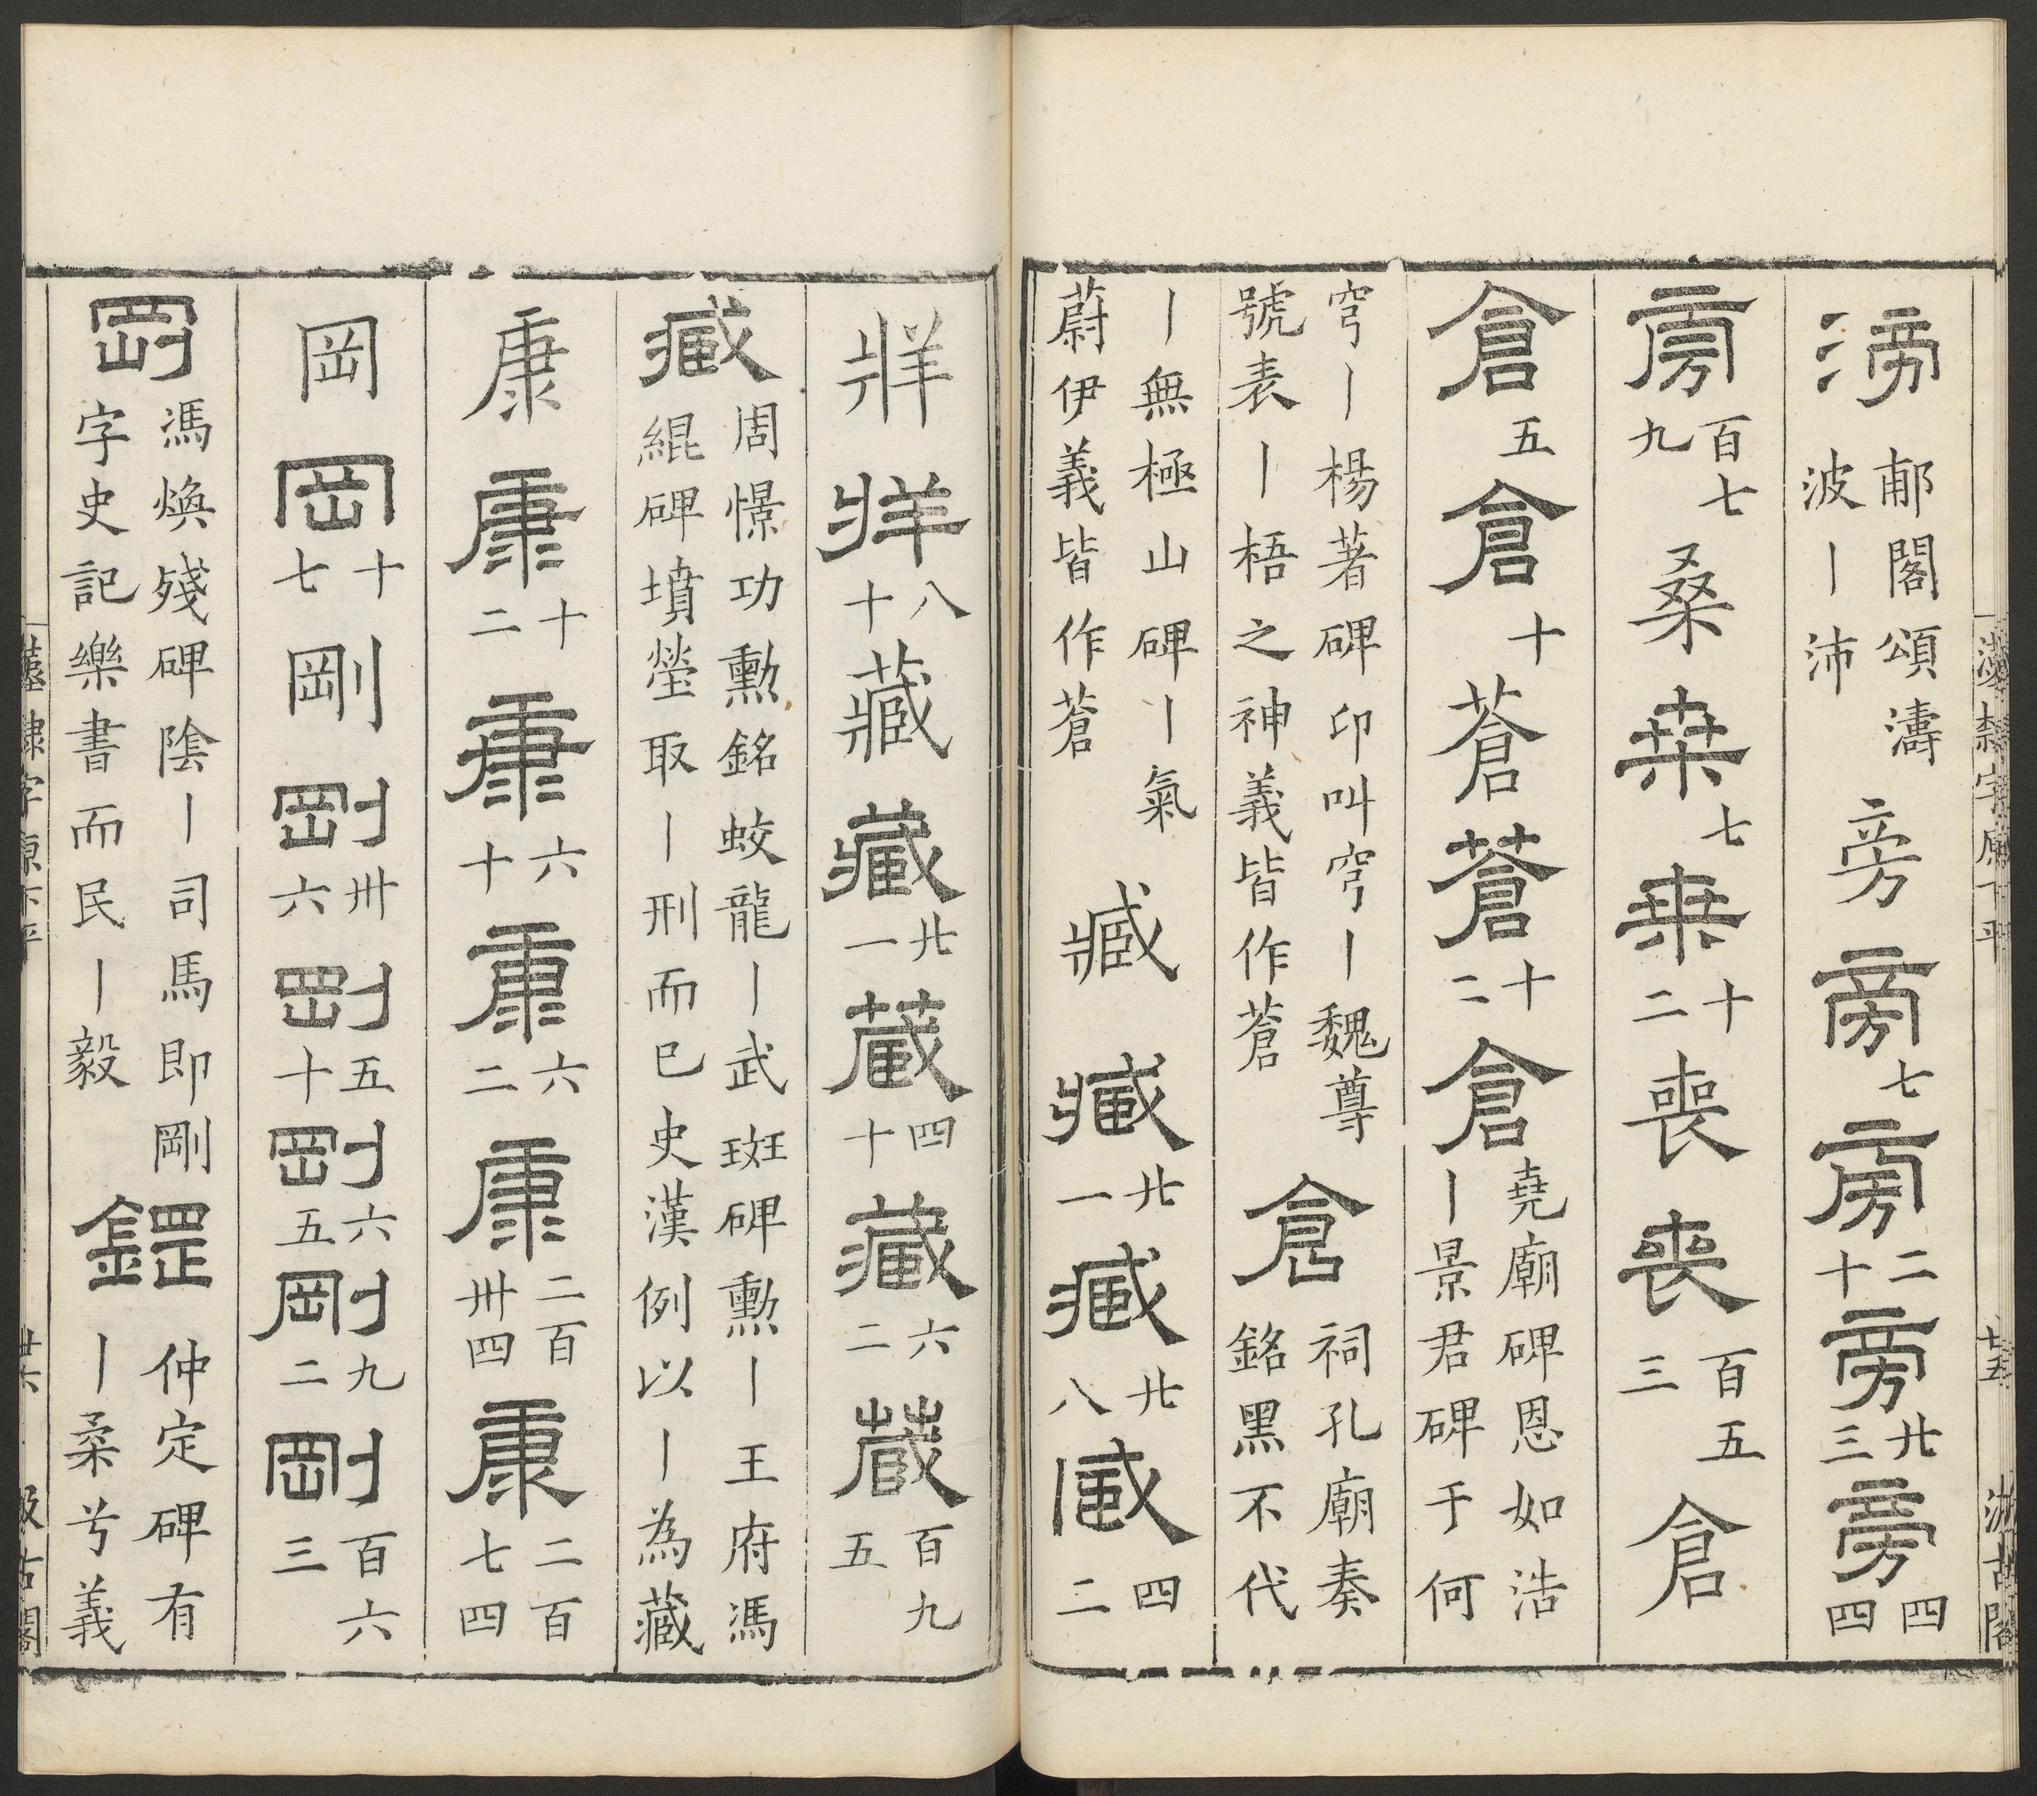 滂郙閣頌濤波丨沛旁㫄七㫄二十㫄廿三㫄四四
㫄百七九桑桒七桒十二喪喪百五三倉
倉五倉十蒼蒼十二倉堯廟碑恩如浩丨景君碑于何
穹丨楊著碑印叫穹丨魏尊號表丨梧之神義皆作蒼倉祠孔廟奏銘黑不代
丨無極山碑丨氣蔚伊義皆作蒼臧臧廿一臧廿八臧四二
牂牂八十藏藏廿一藏四十藏六二藏百九五
臧周憬功勲銘蛟龍丨武斑碑勲丨王府馮緄碑墳塋取丨刑而已史漢例以丨為藏
康康十二康六十康六二康二百卅四康二百七四
岡岡十七剛剛卅六剛五十剛六五剛九二剛百六三
㓻馮煥殘碑陰丨司馬即剛字史記樂書而民丨毅鋼仲定碑有丨柔兮義
漢隸字源下平
七五
汲古閣
漢隸字源下平
七六
汲古閣